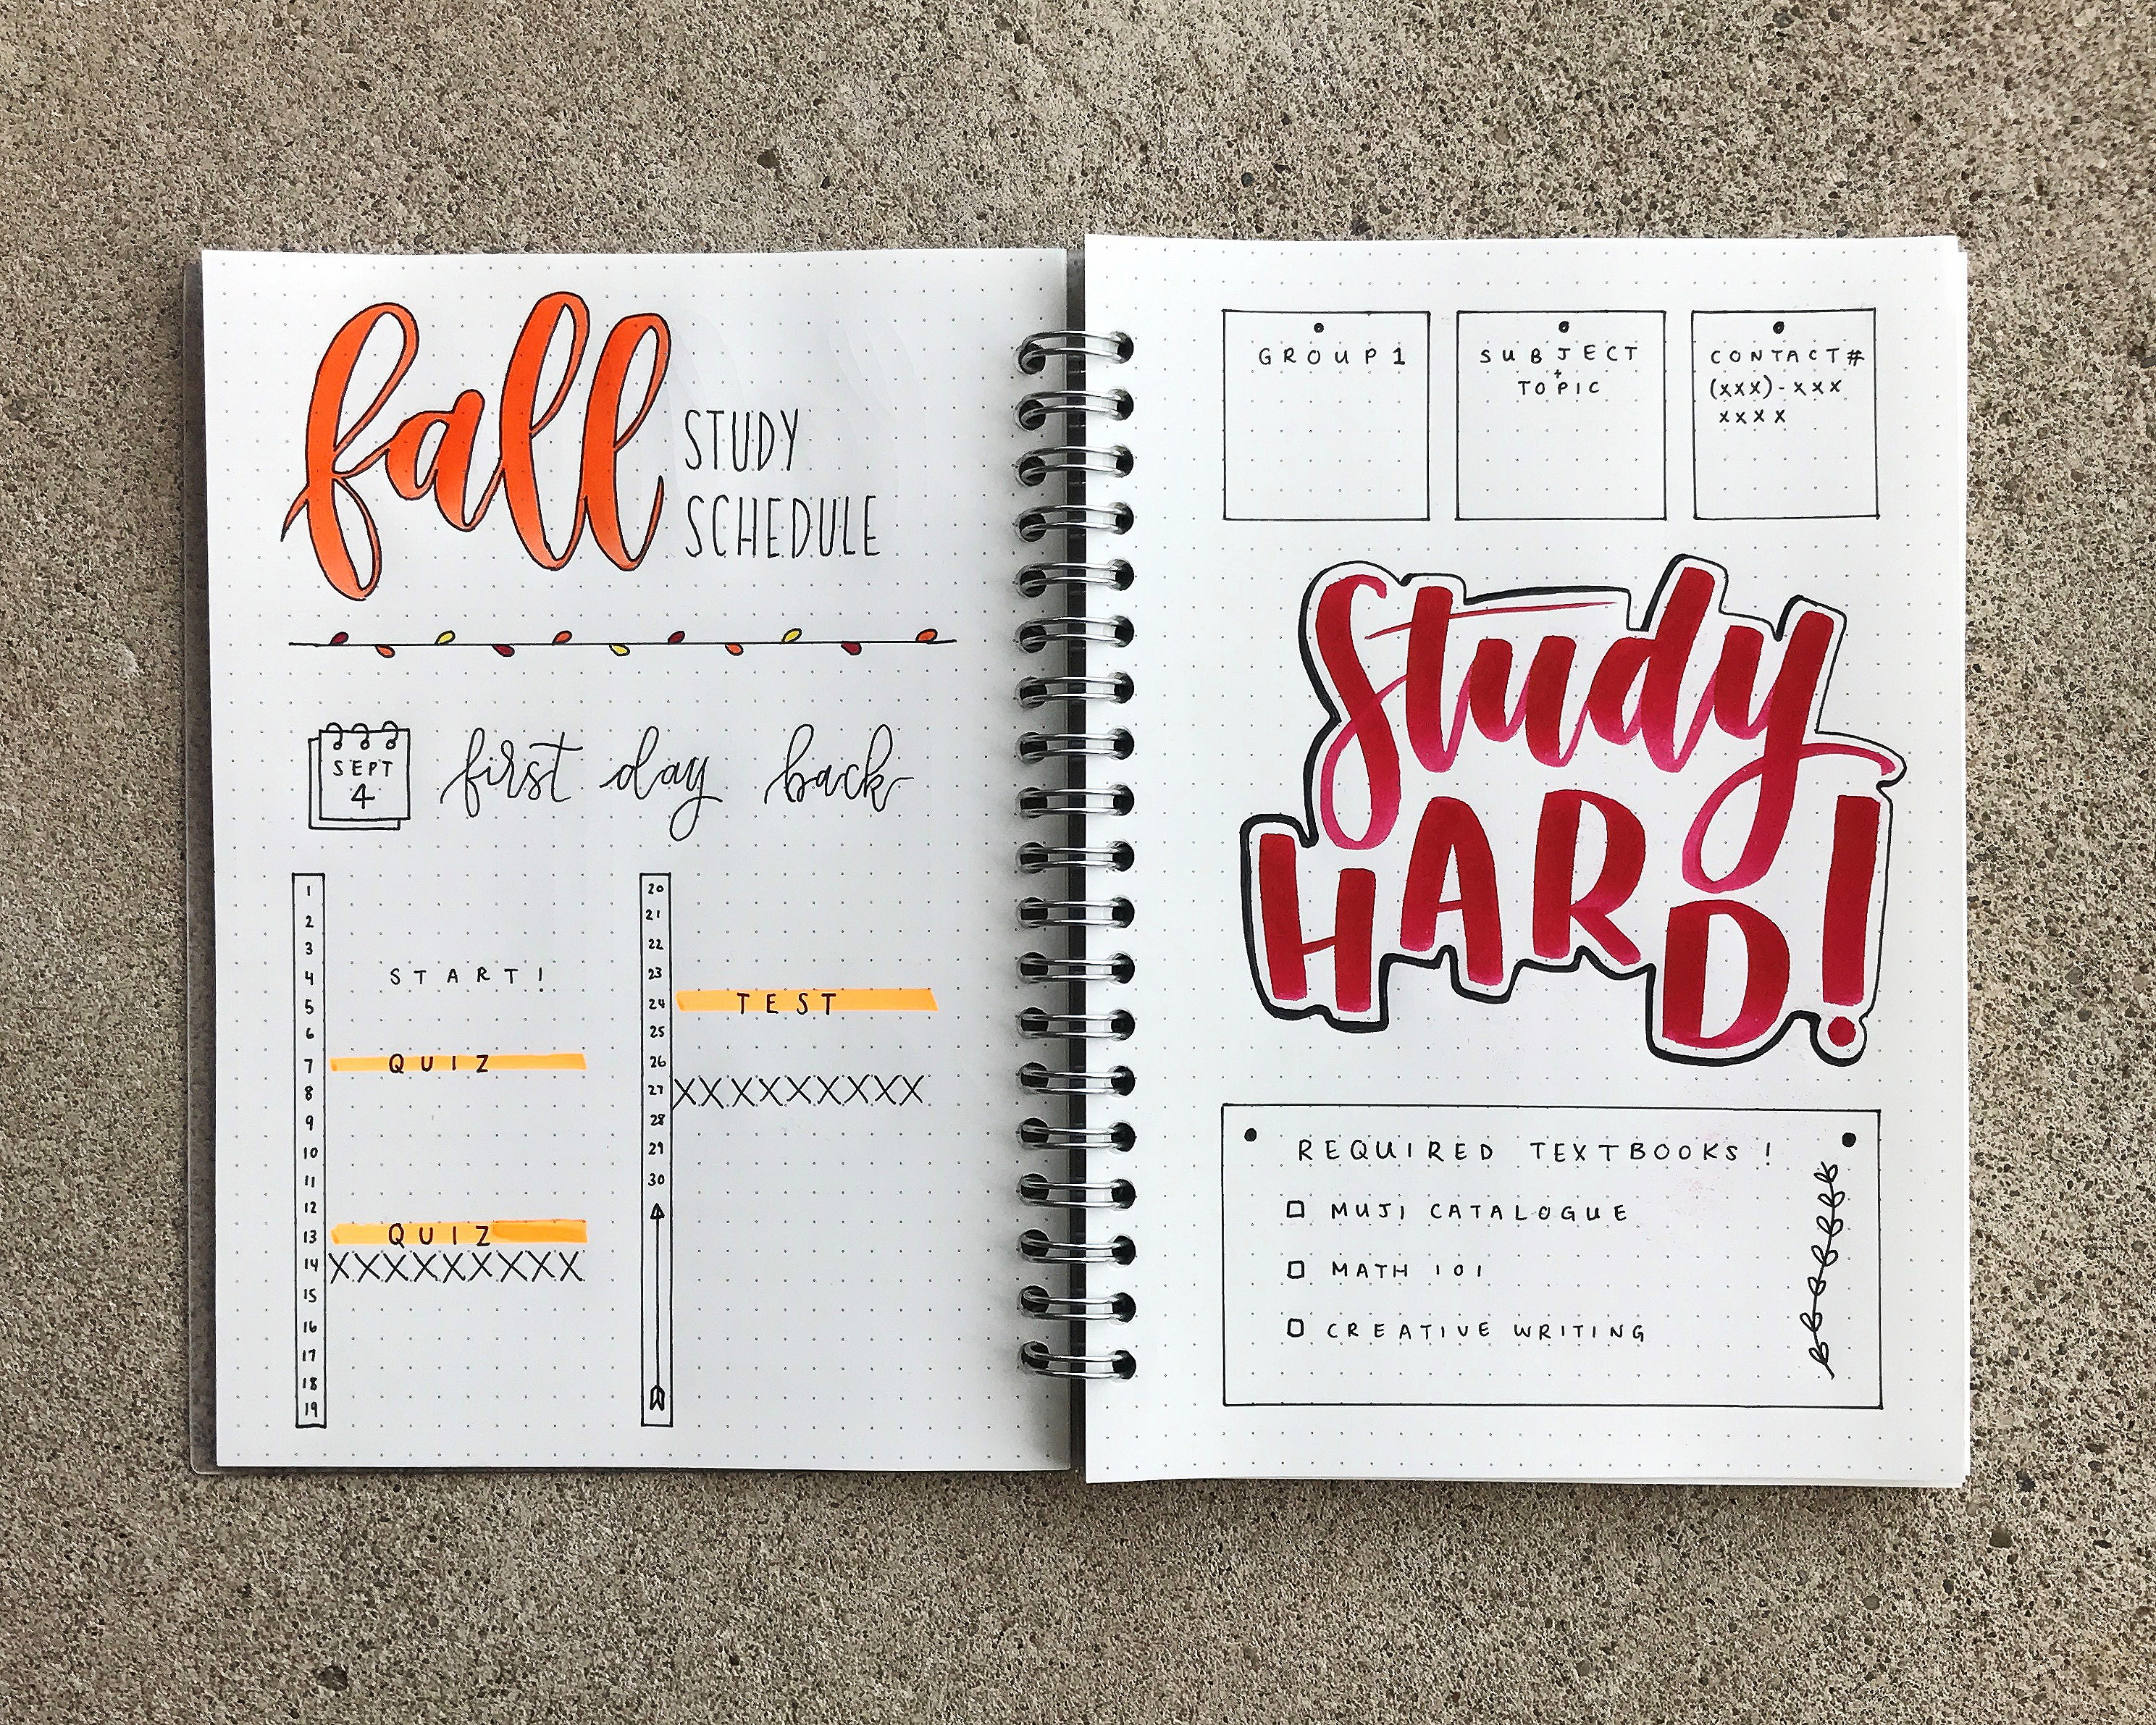 fall
STUDY
SCHEDULE
SEPT
4
first day back
1
2
3
4 START!
5
6
7 QUIZ
8
9
10
11
12
13 QUIZ
14 XXXXXXXXX
15
16
17
18
19
20
21
22
23
24 TEST
25
26
27 XXXXXXXXX
28
29
30
GROUP 1
SUBJECT
+
TOPIC
CONTACT#
(xxx)-xxx
xxxx
Study
HARD!
REQUIRED TEXTBOOKS!
MUJI CATALOGUE
MATH 101
CREATIVE WRITING